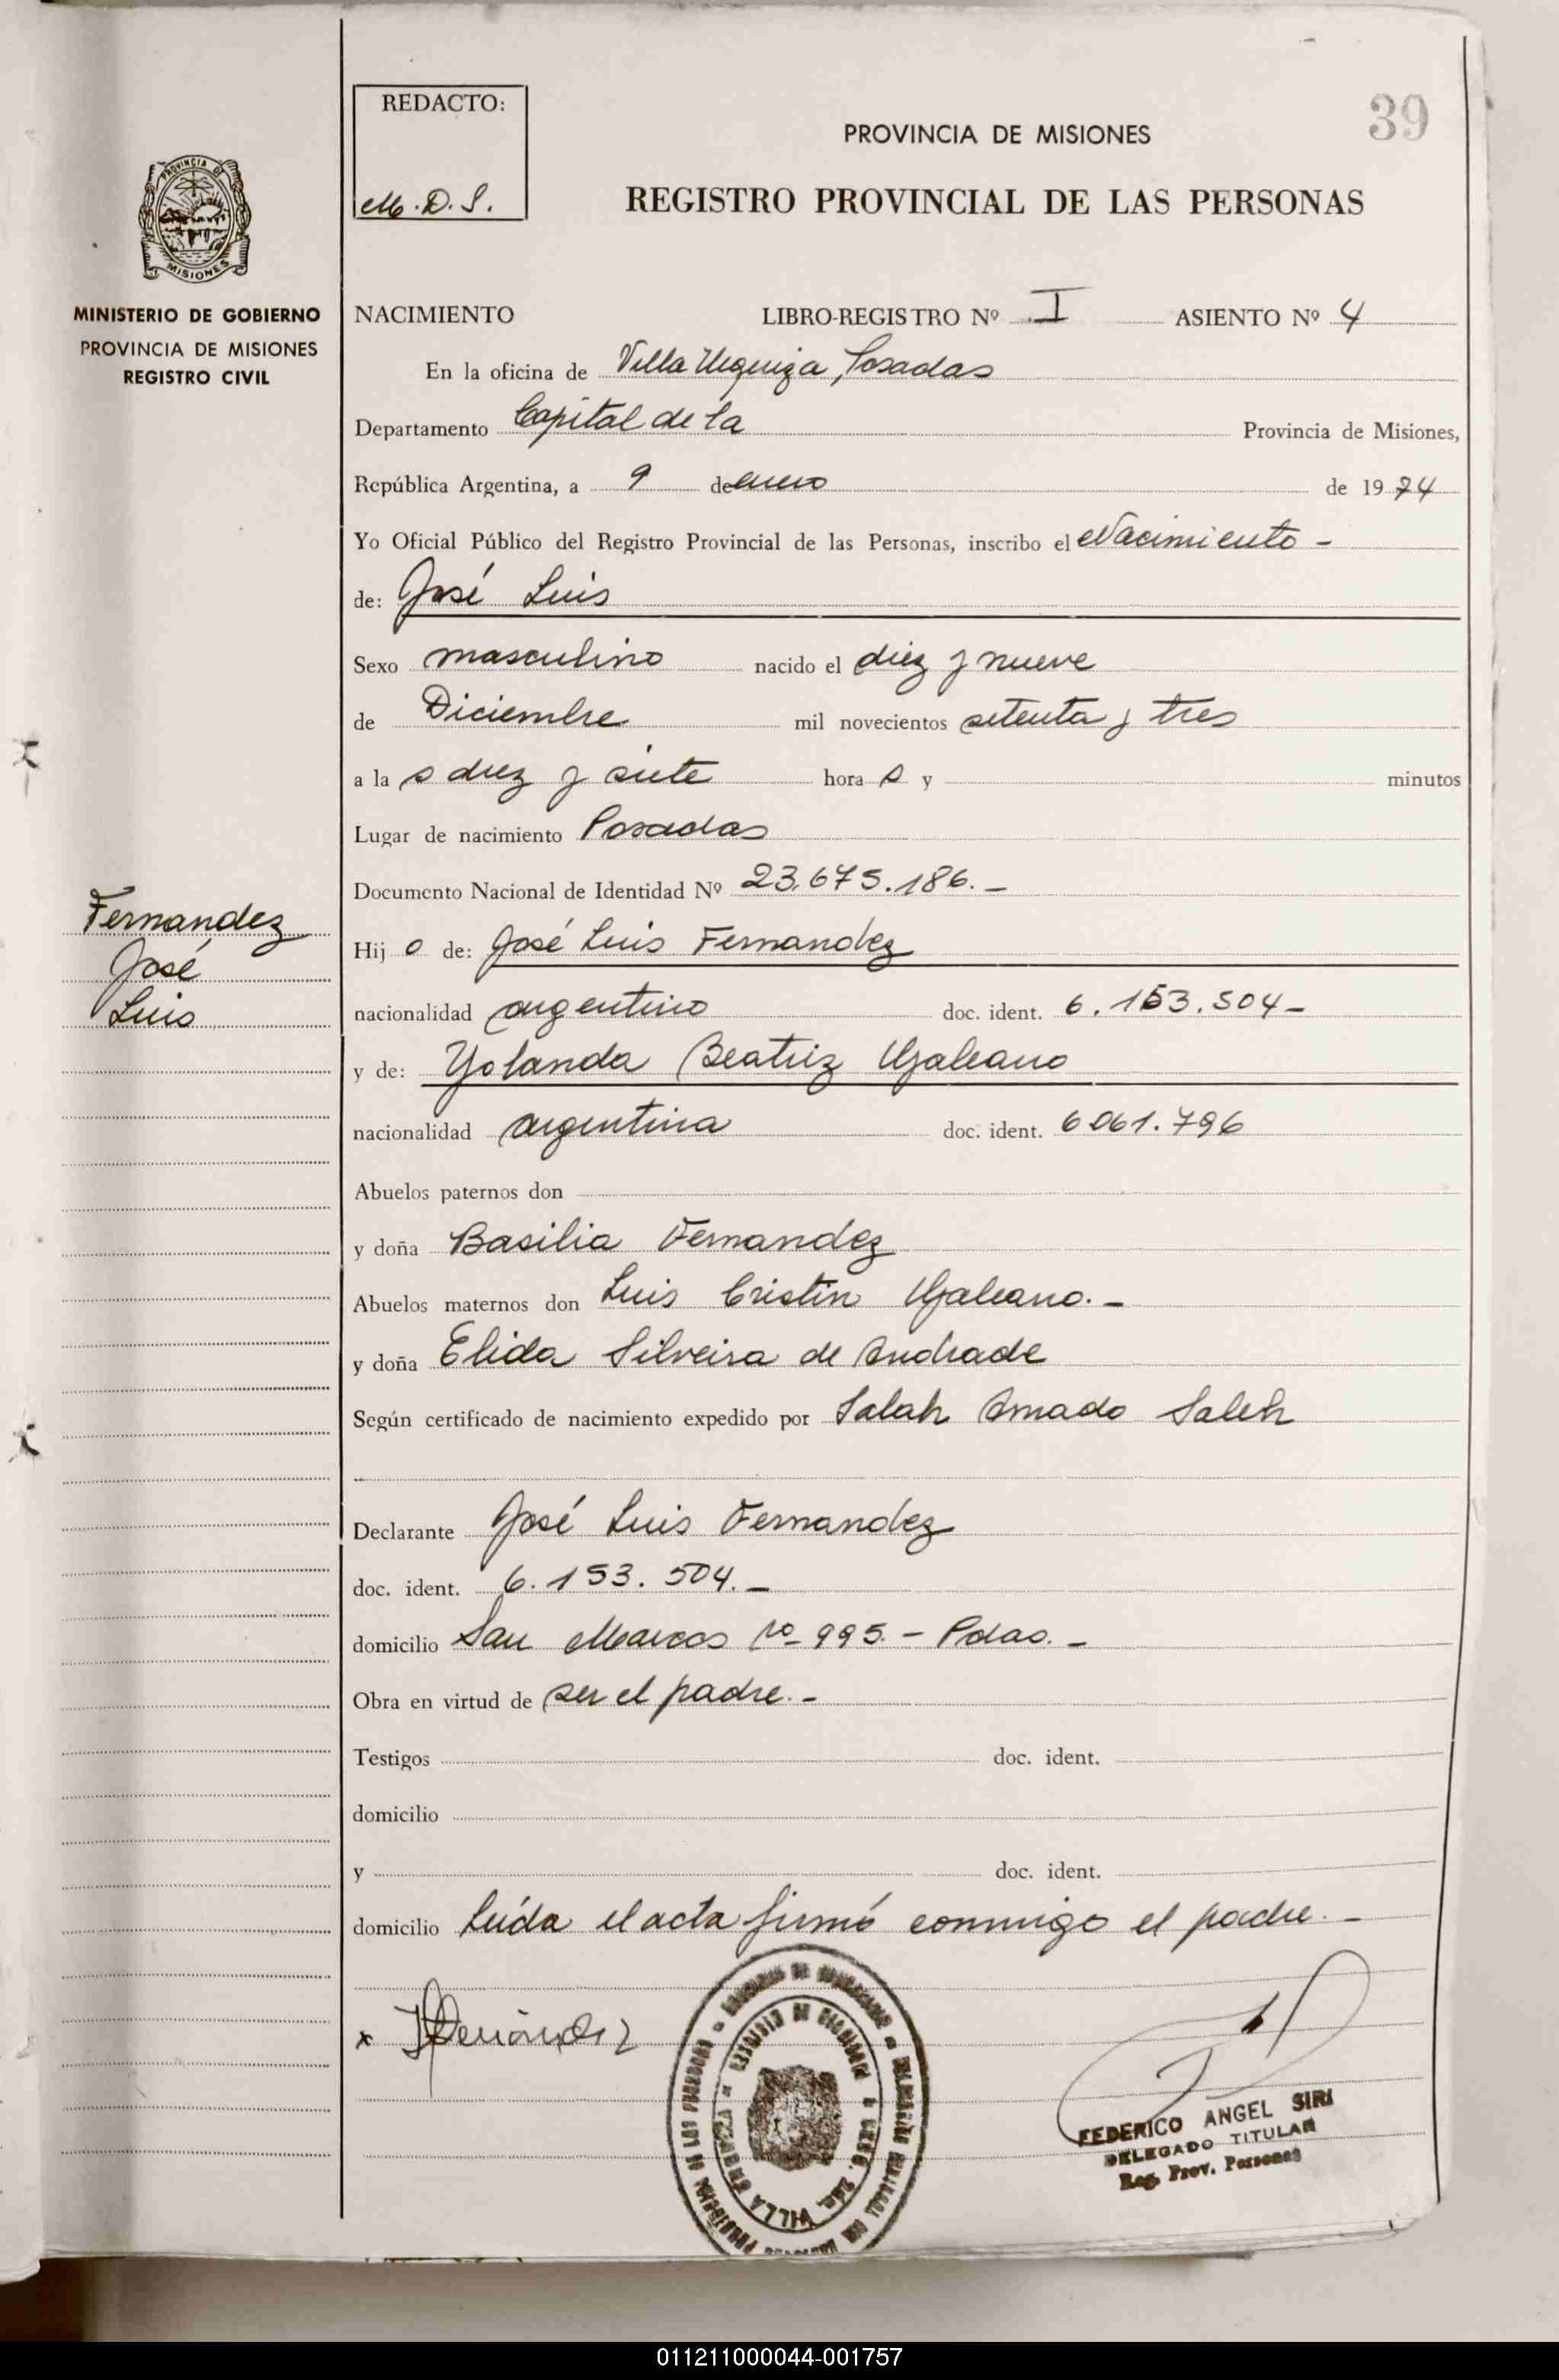 REDACTO:
M.D.S.
39
PROVINCIA DE MISIONES
REGISTRO PROVINCIAL DE LAS PERSONAS
PROVINCIA DE
MISIONES
MINISTERIO DE GOBIERNO
PROVINCIA DE MISIONES
REGISTRO CIVIL
NACIMIENTO LIBRO-REGISTRO Nº I ASIENTO Nº 4
En la oficina de Villa Urquiza, Posadas
Departamento Capital de la Provincia de Misiones,
República Argentina, a 9 de enero de 1974
Yo Oficial Público del Registro Provincial de las Personas, inscribo el Nacimiento -
de: José Luis
Sexo masculino nacido el diez y nueve
de Diciembre mil novecientos setenta y tres
a la s diez y siete hora s y minutos
Lugar de nacimiento Posadas
Documento Nacional de Identidad Nº 23.675.186.-
Fernandez
José
Luis
Hij o de: José Luis Fernandez
nacionalidad argentino doc. ident. 6.153.504-
y de: Yolanda Beatriz Galeano
nacionalidad argentina doc. ident. 6061.796
Abuelos paternos don
y doña Basilia Fernandez
Abuelos maternos don Luis Cristin Galeano.-
y doña Elida Silveira de Andrade
Según certificado de nacimiento expedido por Salah Amado Saleh
Declarante José Luis Fernandez
doc. ident. 6.153.504.-
domicilio San Marcos Nº 995.- Pdas.-
Obra en virtud de ser el padre.-
Testigos doc. ident.
domicilio
y doc. ident.
domicilio Leída el acta firmó conmigo el padre.-
x Fernandez
FEDERICO ANGEL SIRI
DELEGADO TITULAR
Reg. Prov. Personas
011211000044-001757